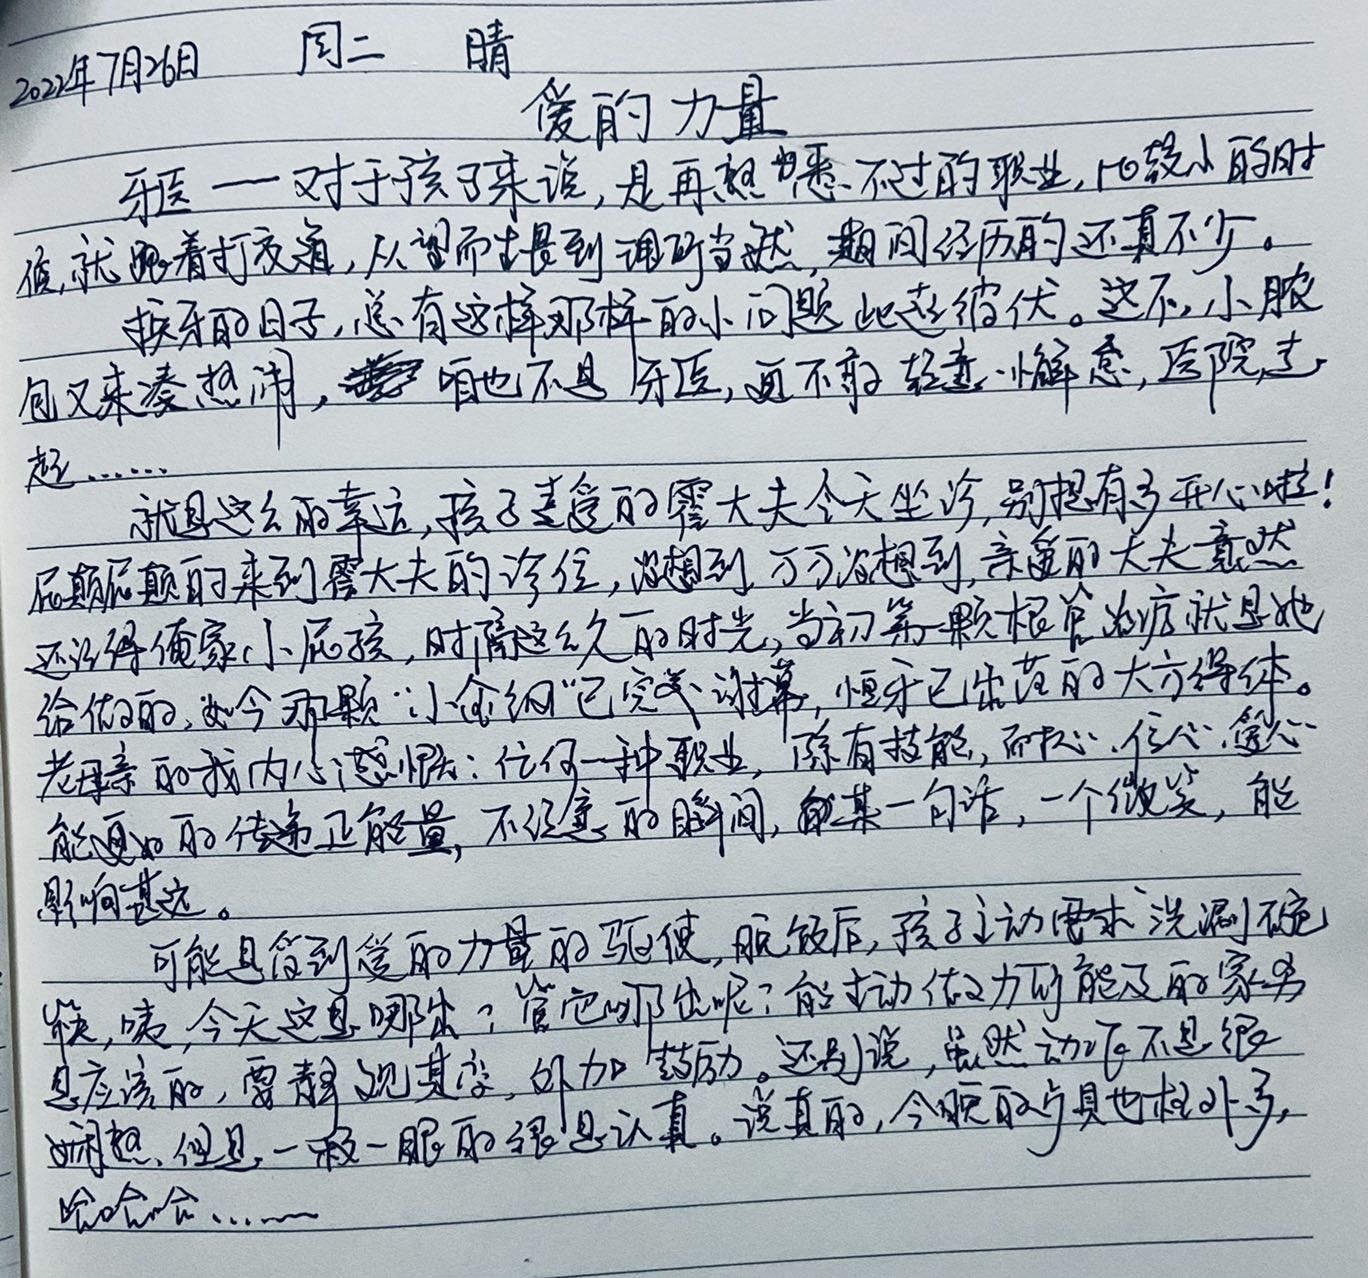 2022年7月26日 周二 晴
爱的力量
牙医——对于孩子来说,是再熟悉不过的职业,比较小的时
候,就跟着打交道,从望而生畏到理所当然,期间经历的还真不少。
换牙的日子,总有这样那样的小问题此起彼伏。这不,小脓
包又来凑热闹,咱也不是牙医,更不敢轻易懈怠,医院走
起……
就是这么的幸运,孩子喜爱的霍大夫今天坐诊,别提有多开心啦!
屁颠屁颠的来到霍大夫的诊位,没想到,万万没想到,亲爱的大夫竟然
还记得俺家小屁孩,时隔这么久的时光,当初第一颗根管治疗就是她
给做的,如今那颗“小金钢”已完美谢幕,恒牙已出落的大方得体。
老母亲的我内心感慨:任何一种职业,除有技能,而耐心、信心、爱心
能更好的传递正能量,不经意的瞬间,某一句话,一个微笑,能
影响甚远。
可能是receive到爱的力量的驱使,晚饭后,孩子主动要求洗涮碗
筷,咦,今天这是哪出?管它哪出呢?能主动做力所能及的家务
是应该的,要静观其变,外加鼓励。还别说,虽然动作不是很
娴熟,但是一板一眼的很是认真。说真的,今晚的餐具也格外多,
哈哈哈……